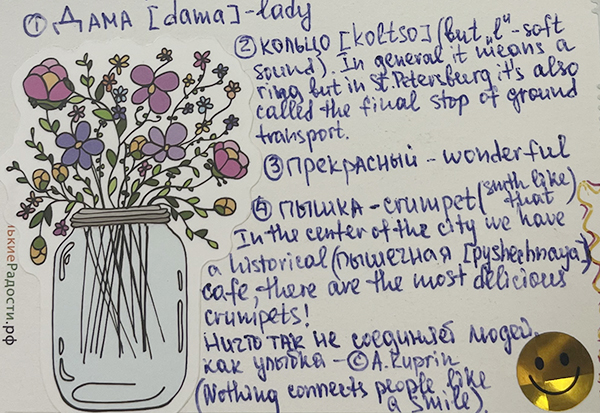 ① ДАМА [dama]-lady
② КОЛЬЦО [koltso] (but „l"-soft
sound). In general it means a
ring but in St.Petersburg it's also
called the final stop of ground
transport.
③ ПРЕКРАСНЫЙ - wonderful
④ ПЫШКА - crumpet (smth like that)
In the center of the city we have
a historical (ПЫШЕЧНАЯ [pyshechnaya])
cafe, there are the most delicious
crumpets!
Ничто так не соединяет людей,
как улыбка - © A. Kuprin
(Nothing connects people like
a smile)
лькиеРадости.рф